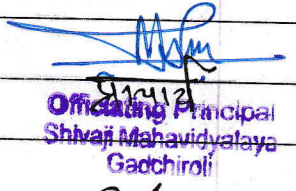 प्राचार्य
Officiating Principal
Shivaji Mahavidyalaya
Gadchiroli